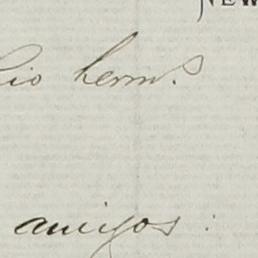 NEW
io herm.s
amigos: